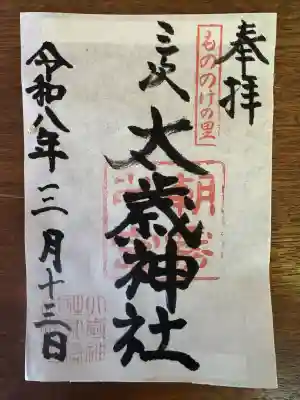 奉拝
もののけの里
三次
太歳神社
令和八年三月十三日